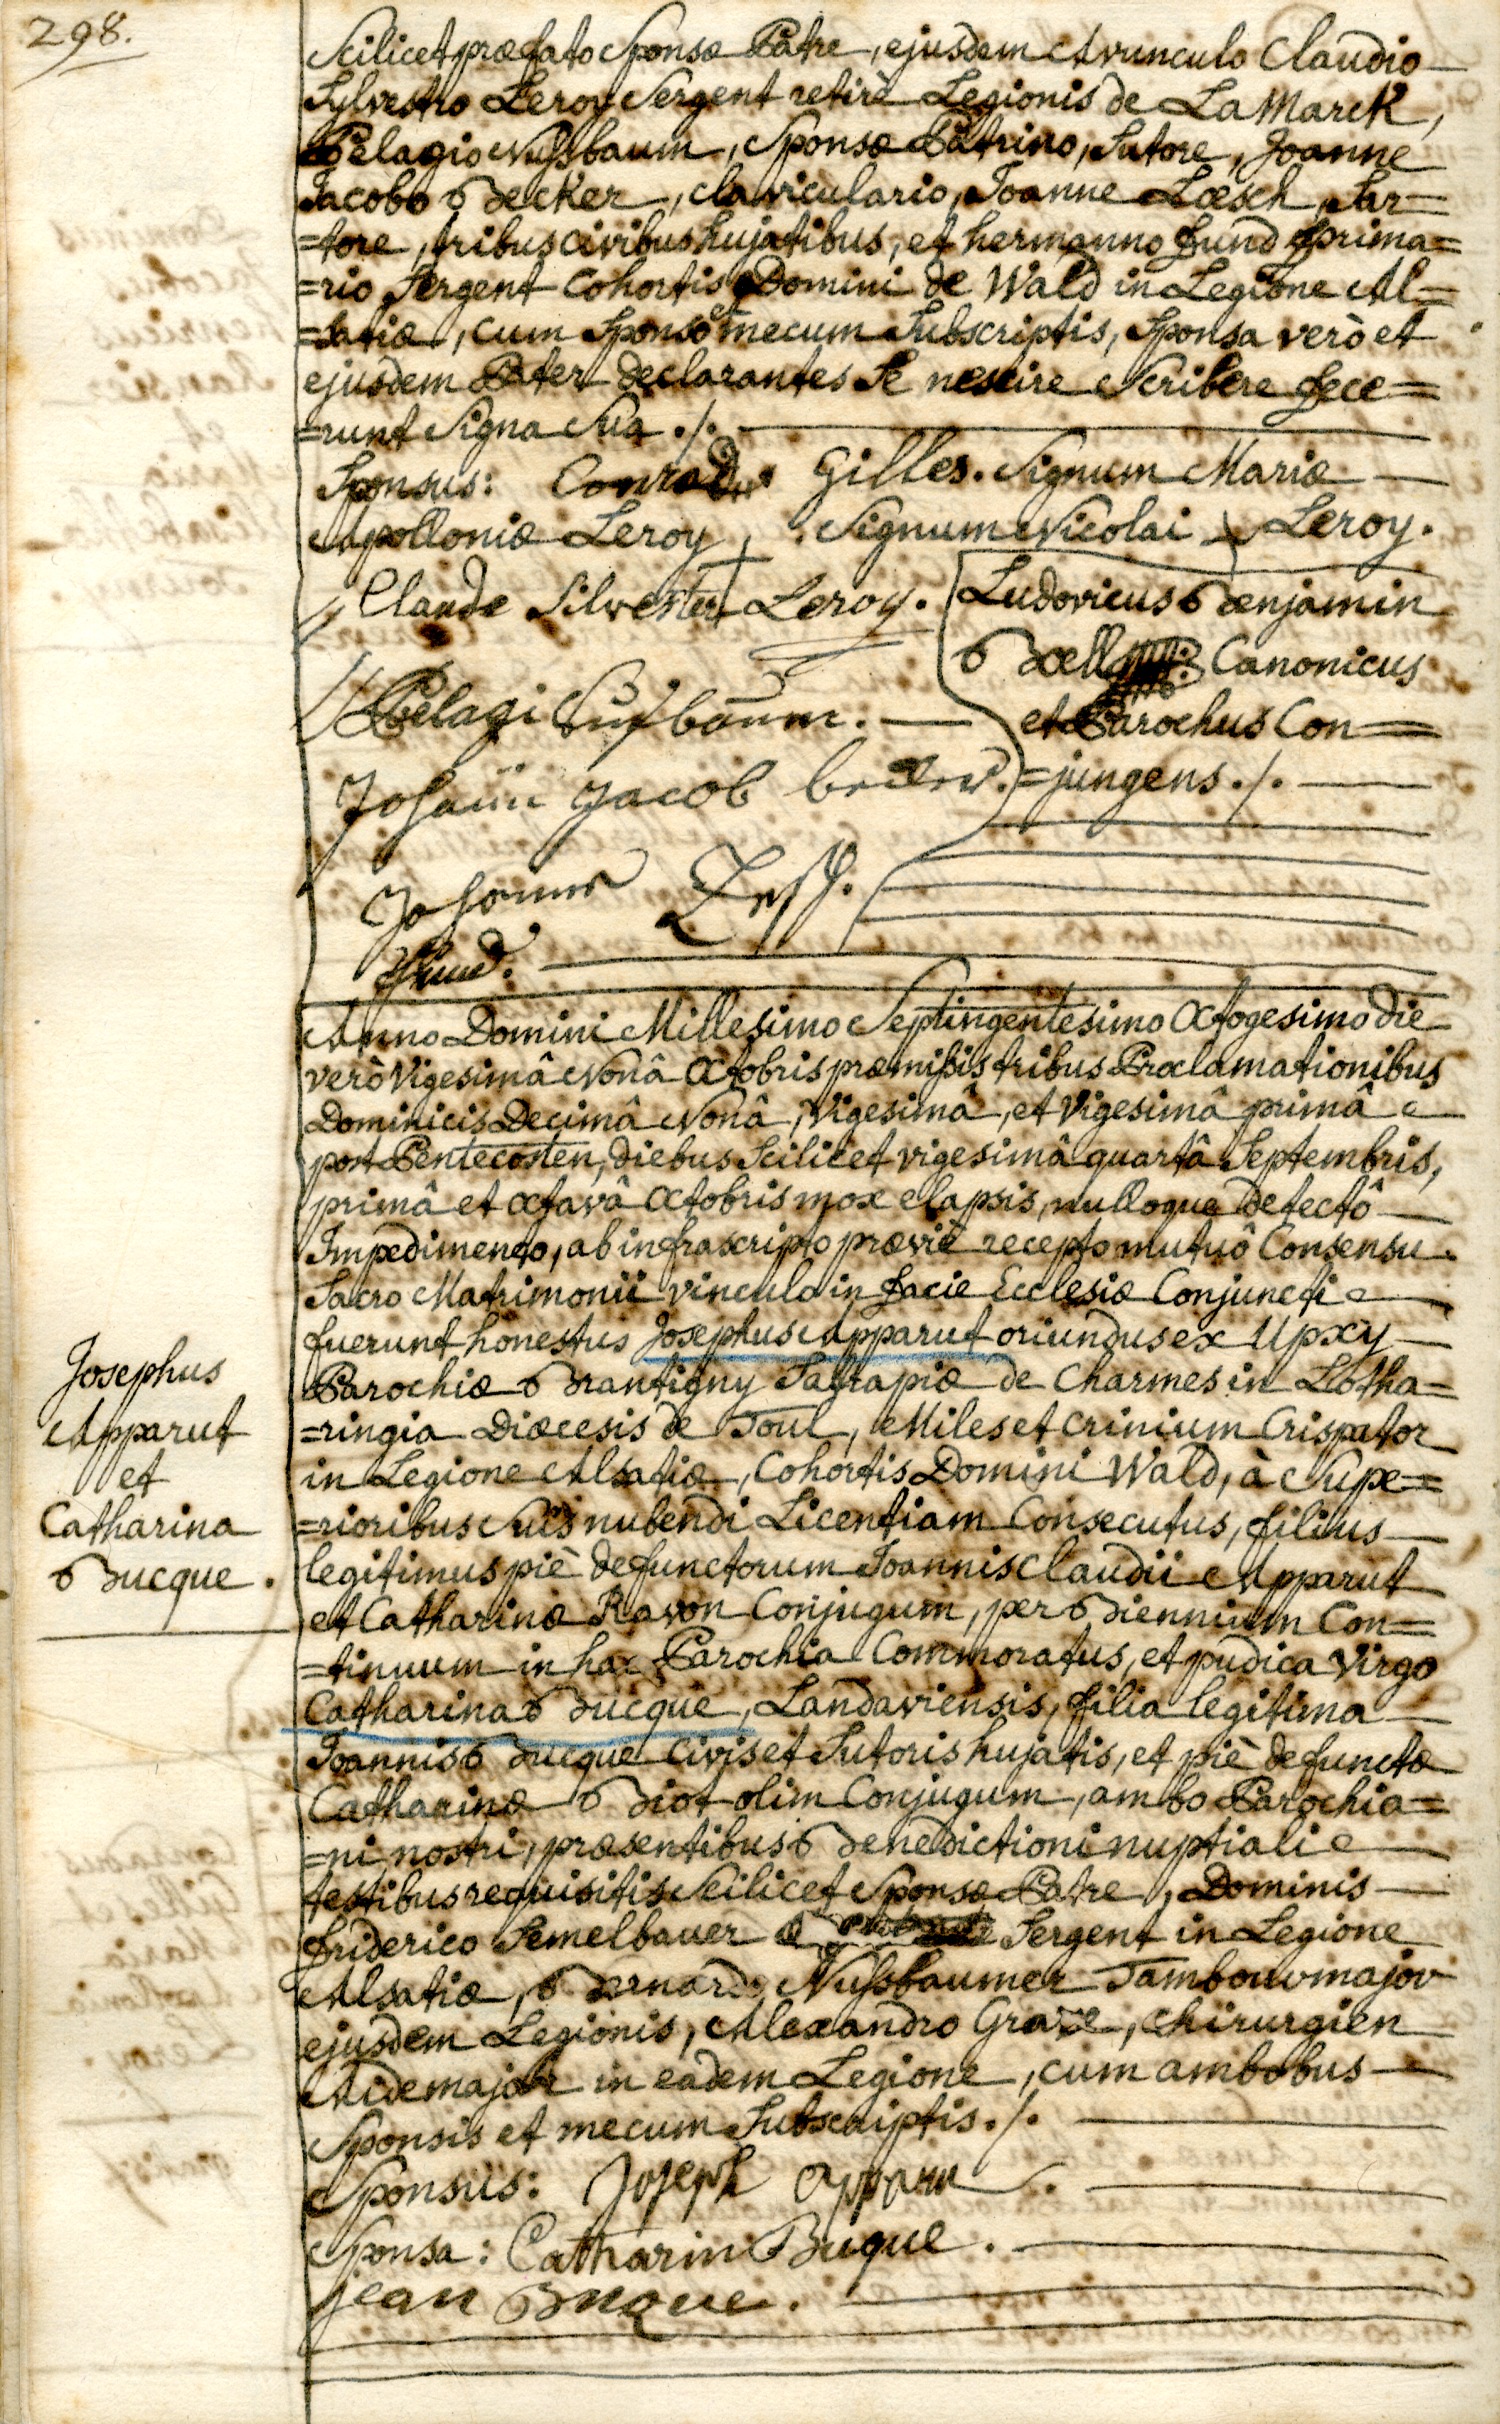 298.
Scilicet præfato Sponsæ Patre, ejusdem Avunculo Claudio
Sylvestro Leroy Sergent retirè Legionis de La Marck,
Pelagio Nußbaum, Sponsæ Patrino, Sutore, Joanne
Jacobo Becker, claviculario, Joanne Lœsch, Sar=
=tore, tribus civibus hujatibus, et hermanno fund prima=
=rio Sergent Cohortis Domini de Wald in Legione Al=
=satiæ, cum Sponso et mecum Subscriptis, Sponsa verò et
ejusdem Pater declarantes Se nescire Scribere fece=
=runt Signa Sua ./.
Sponsus: Conrad Gilles. Signum Mariæ
Apolloniæ Leroy, Signum Nicolai Leroy.
Claude Silvester Leroy.
Ludovicus Benjamin
Bœll Canonicus
et Parochus Con=
=jungens ./.
Pelagi Nußbaum.
Johann Jacob becker.
Johannes Lesch.
fund.
Anno Domini Millesimo Septingentesimo Octogesimo die
verò Vigesimâ Nonâ Octobris præmißis tribus Proclamationibus
Dominicis Decimâ Nonâ, Vigesimâ, et Vigesimâ primâ
post Pentecosten, diebus Scilicet vigesimâ quartâ Septembris,
primâ et octavâ Octobris mox elapsis, nulloque detectô
Impedimento, ab infrascripto præviè recepto mutuô Consensu
Sacro Matrimonii vinculo in facie Ecclesiæ Conjuncti
fuerunt honestus Josephus Apparut oriundus ex Upxy
Parochiæ Brantigny Satrapiæ de Charmes in Lotha=
=ringia Diœcesis de Toul, Miles et Crinium Crispator
in Legione Alsatiæ, Cohortis Domini Wald, à Supe=
=rioribus Suis nubendi Licentiam Consecutus, filius
legitimus piè defunctorum Joannis Claudii Apparut
et Catharinæ Ravon Conjugum, per Biennium Con=
=tinuum in hac Parochia Commoratus, et pudica Virgo
Catharina Bucque, Landaviensis, filia legitima
Joannis Bucque Civis et Sutoris hujatis, et piè defunctæ
Catharinæ Biot olim Conjugum, ambo Parochia=
=ni nostri, præsentibus Benedictioni nuptiali
testibus requisitis Scilicet Sponsæ Patre, Dominis
friderico Semelbauer Sergent in Legione
Alsatiæ, Bernardo Nußbaumer Tambourmajor
ejusdem Legionis, Alexandro Graze, Chirurgien
Aidemajor in eadem Legione, cum ambobus
Sponsis et mecum Subscriptis ./.
Sponsus: Joseph apparu
Sponsa: Catharin Buque.
jean Buque.
Josephus
Apparut
et
Catharina
Bucque.